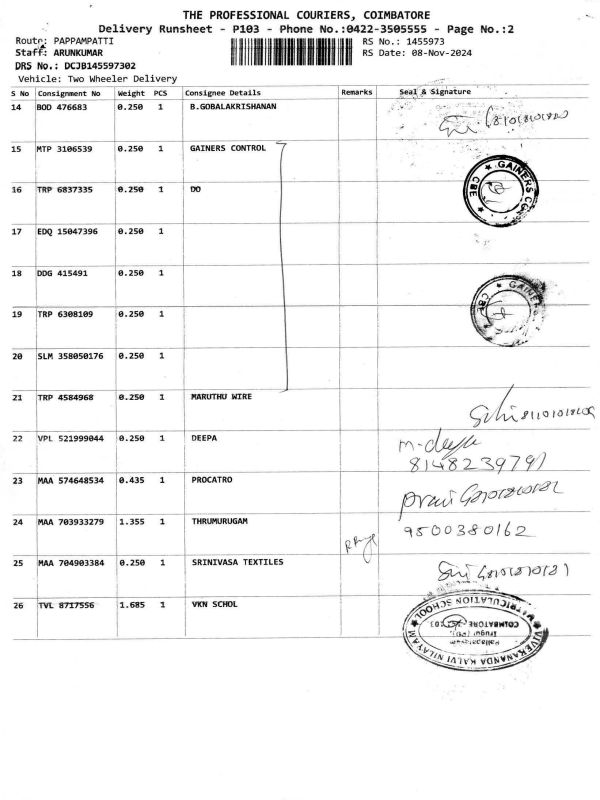 THE PROFESSIONAL COURIERS, COIMBATORE
Delivery Runsheet - P103 - Phone No.:0422-3505555 - Page No.:2
Route: PAPPAMPATTI RS No.: 1455973
Staff: ARUNKUMAR RS Date: 08-Nov-2024
DRS No.: DCJB145597302
Vehicle: Two Wheeler Delivery
S No Consignment No Weight PCS Consignee Details Remarks Seal & Signature
14 BOD 476683 0.250 1 B.GOBALAKRISHANAN
15 MTP 3106539 0.250 1 GAINERS CONTROL
16 TRP 6837335 0.250 1 DO
GAINERS CO
CBE
17 EDQ 15047396 0.250 1
18 DDG 415491 0.250 1
GAINER
CBE
19 TRP 6308109 0.250 1
20 SLM 358050176 0.250 1
21 TRP 4584968 0.250 1 MARUTHU WIRE
22 VPL 521999044 0.250 1 DEEPA m-deepa
8148239791
23 MAA 574648534 0.435 1 PROCATRO
24 MAA 703933279 1.355 1 THRUMURUGAM 9500380162
25 MAA 704903384 0.250 1 SRINIVASA TEXTILES
26 TVL 8717556 1.685 1 VKN SCHOL
VIVEKANANDA KALVI NILAYAM
MATRICULATION SCHOOL
Pallapalayam
Irugur (PO),
COIMBATORE